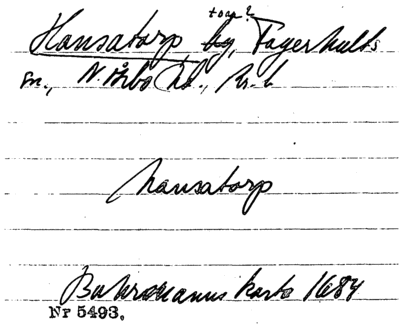 torp?
Hansatorp, by, Fagerhults
sn., N. Åsbo hd., Kr. l.
Hansatorp
Buhrmanus karta 1684
Nr 5493.